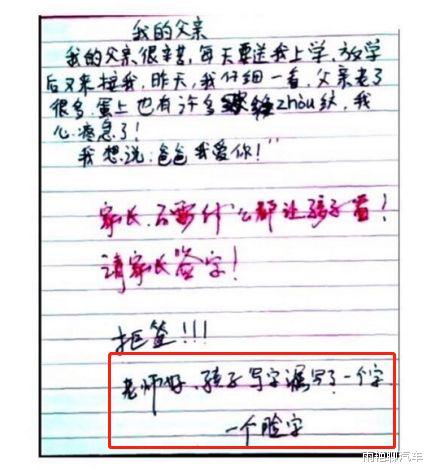 我的父亲
我的父亲很辛苦,每天要送我上学,放学
后又来接我,昨天,我仔细一看,父亲老了
很多,蛋上也有许多zhòu纹,我
心疼急了!
我想说:爸爸我爱你!"
家长,不要什么都让孩子看!
请家长签字!
拒签!!!
老师好,孩子写字漏写了一个字
一个脸字
雨艳聊汽车